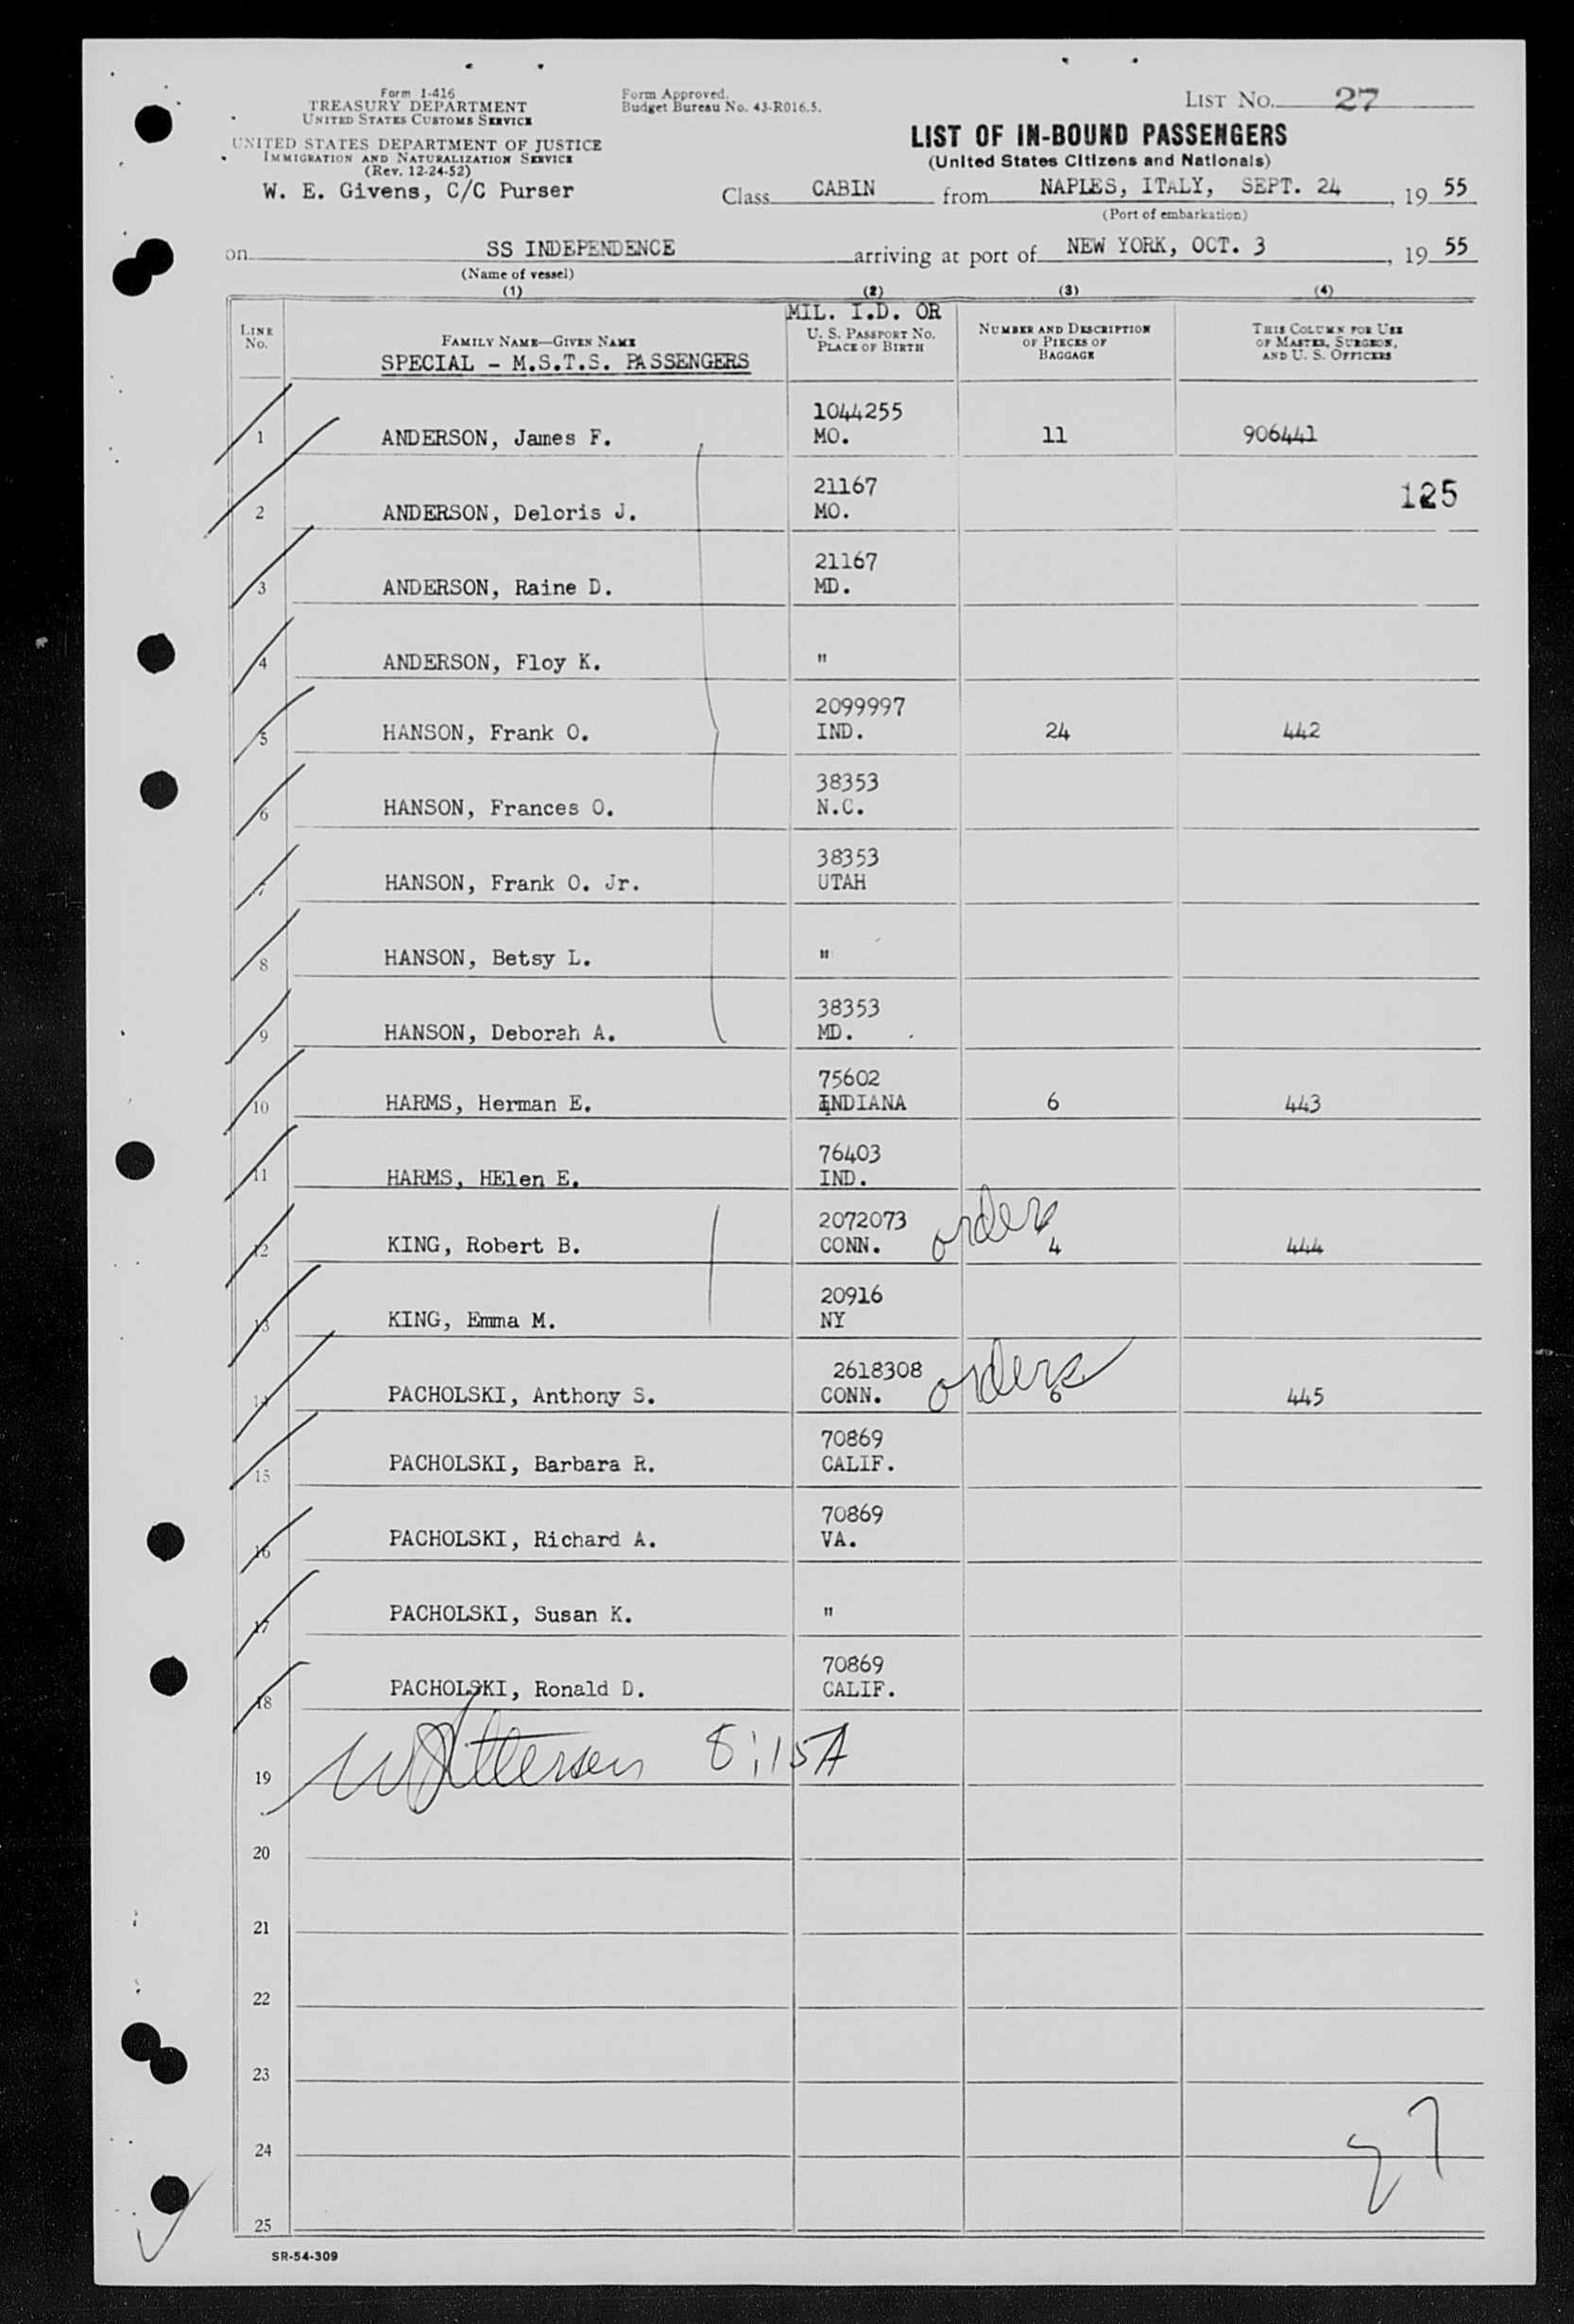 Form I-416
TREASURY DEPARTMENT
UNITED STATES CUSTOMS SERVICE
UNITED STATES DEPARTMENT OF JUSTICE
IMMIGRATION AND NATURALIZATION SERVICE
(Rev. 12-24-52)
W. E. Givens, C/C Purser
Form Approved.
Budget Bureau No. 43-R016.5.
LIST NO. 27
LIST OF IN-BOUND PASSENGERS
(United States Citizens and Nationals)
Class CABIN from NAPLES, ITALY, SEPT. 24, 19 55
(Port of embarkation)
on SS INDEPENDENCE arriving at port of NEW YORK, OCT. 3, 19 55
(Name of vessel)
(1) (2) (3) (4)
LINE No.
FAMILY NAME—GIVEN NAME
SPECIAL - M.S.T.S. PASSENGERS
MIL. I.D. OR
U. S. PASSPORT No.
PLACE OF BIRTH
NUMBER AND DESCRIPTION
OF PIECES OF
BAGGAGE
THIS COLUMN FOR USE
OF MASTER, SURGEON,
AND U. S. OFFICERS
1044255
1 ANDERSON, James F. MO. 11 906441
21167 125
2 ANDERSON, Deloris J. MO.
21167
3 ANDERSON, Raine D. MD.
4 ANDERSON, Floy K. "
2099997
5 HANSON, Frank O. IND. 24 442
38353
6 HANSON, Frances O. N.C.
38353
7 HANSON, Frank O. Jr. UTAH
8 HANSON, Betsy L. "
38353
9 HANSON, Deborah A. MD.
75602
10 HARMS, Herman E. INDIANA 6 443
76403
11 HARMS, HElen E. IND.
2072073 orders
12 KING, Robert B. CONN. 4 444
20916
13 KING, Emma M. NY
2618308 orders
14 PACHOLSKI, Anthony S. CONN. 6 445
70869
15 PACHOLSKI, Barbara R. CALIF.
70869
16 PACHOLSKI, Richard A. VA.
17 PACHOLSKI, Susan K. "
70869
18 PACHOLSKI, Ronald D. CALIF.
19 8:15A
20
21
22
23
24
27
25
SR-54-309